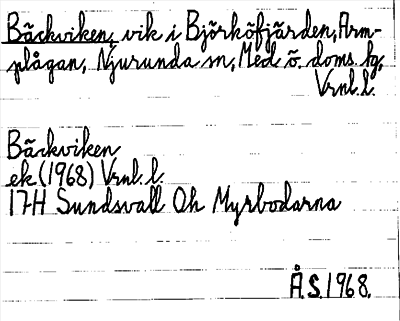 Bäckviken, vik i Björköfjärden, Arm-
plågan, Njurunda sn, Med ö. doms. hg,
Vrnl. l.
Bäckviken
ek (1968) Vrnl. l.
17H Sundsvall Oh Myrbodarna
Å.S. 1968.